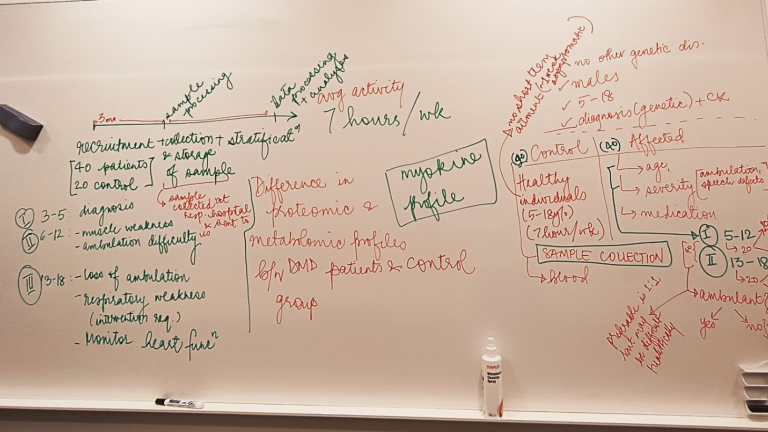 3 mo
sample
processing
data
processing
+ analysis
recruitment → collection + stratificatⁿ
& storage
of sample
[40 patients
20 control]
→ sample
collected at
resp. hospital
& sent to
us
I 3-5: diagnosis
II 6-12: - muscle weakness
- ambulation difficulty
III 13-18: - loss of ambulation
- respiratory weakness
(intervention req.)
- Monitor heart funcⁿ
avg activity
7 hours/wk
Difference in
proteomic &
metabolomic profiles
b/w DMD patients & control
group
myokine
profile
no short term
ailment
asymptomatic)
no other genetic dis.
✓ males
✓ 5-18
✓ diagnosis (genetic) + CK
(40) Control
Healthy
individuals
(5-18y/o)
(7hour/wk)
SAMPLE COLLECTION
→ blood
(40) Affected
→ age
→ severity
(ambulation,
speech defects
→ medication
I 5-12
→ 20
II 13-18
→ 20
→ ambulant
yes
no
preferable is 1:1
but may
be difficult
realistically